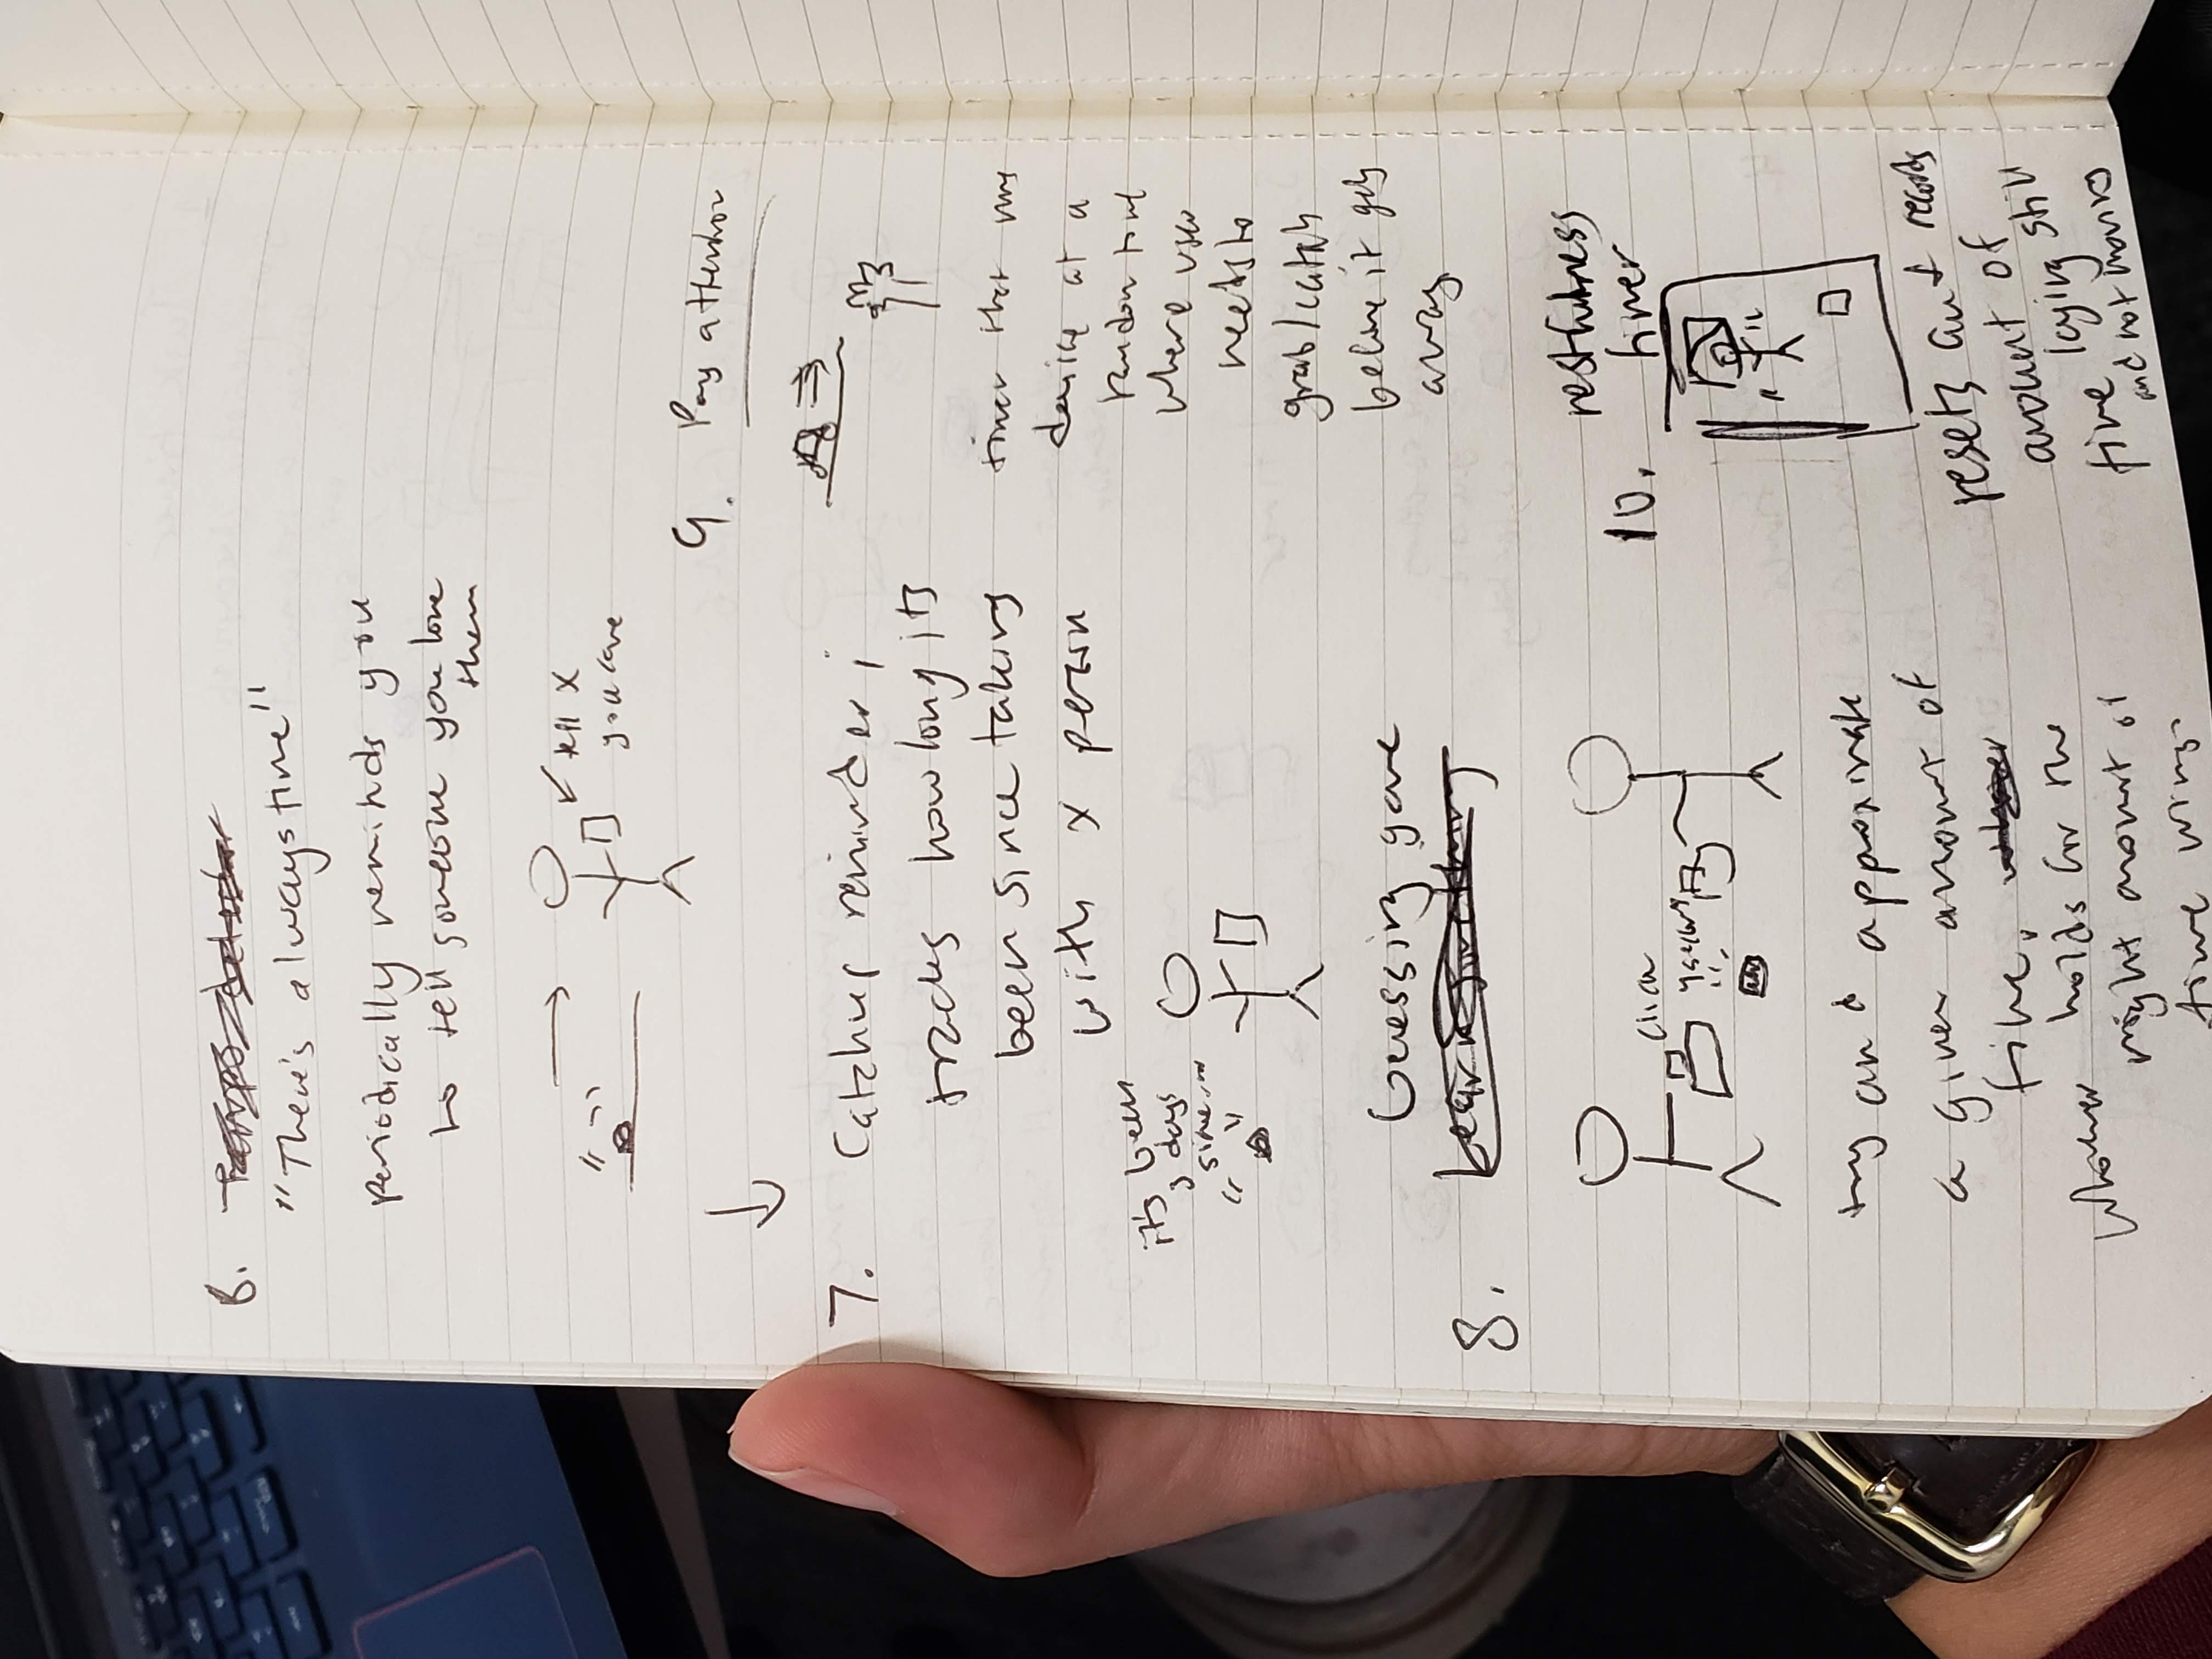 6.
"There's always time"
periodically reminds you
to tell someone you love
them
tell X
you love
7. Catchup reminder;
tracks how long its
been since talking
with x person
it's been
3 days
since...
Guessing game
8. Learn something
click
y seconds
try and approximate
a given amount of
time. whoever
whoever holds for the
right amount of
time wins.
9. Pay attention
timer that runs
device at a
random time
where user
needs to
grab/catch
before it gets
away
restfulness
10. timer
resets and records
amount of
time laying still
and not moving